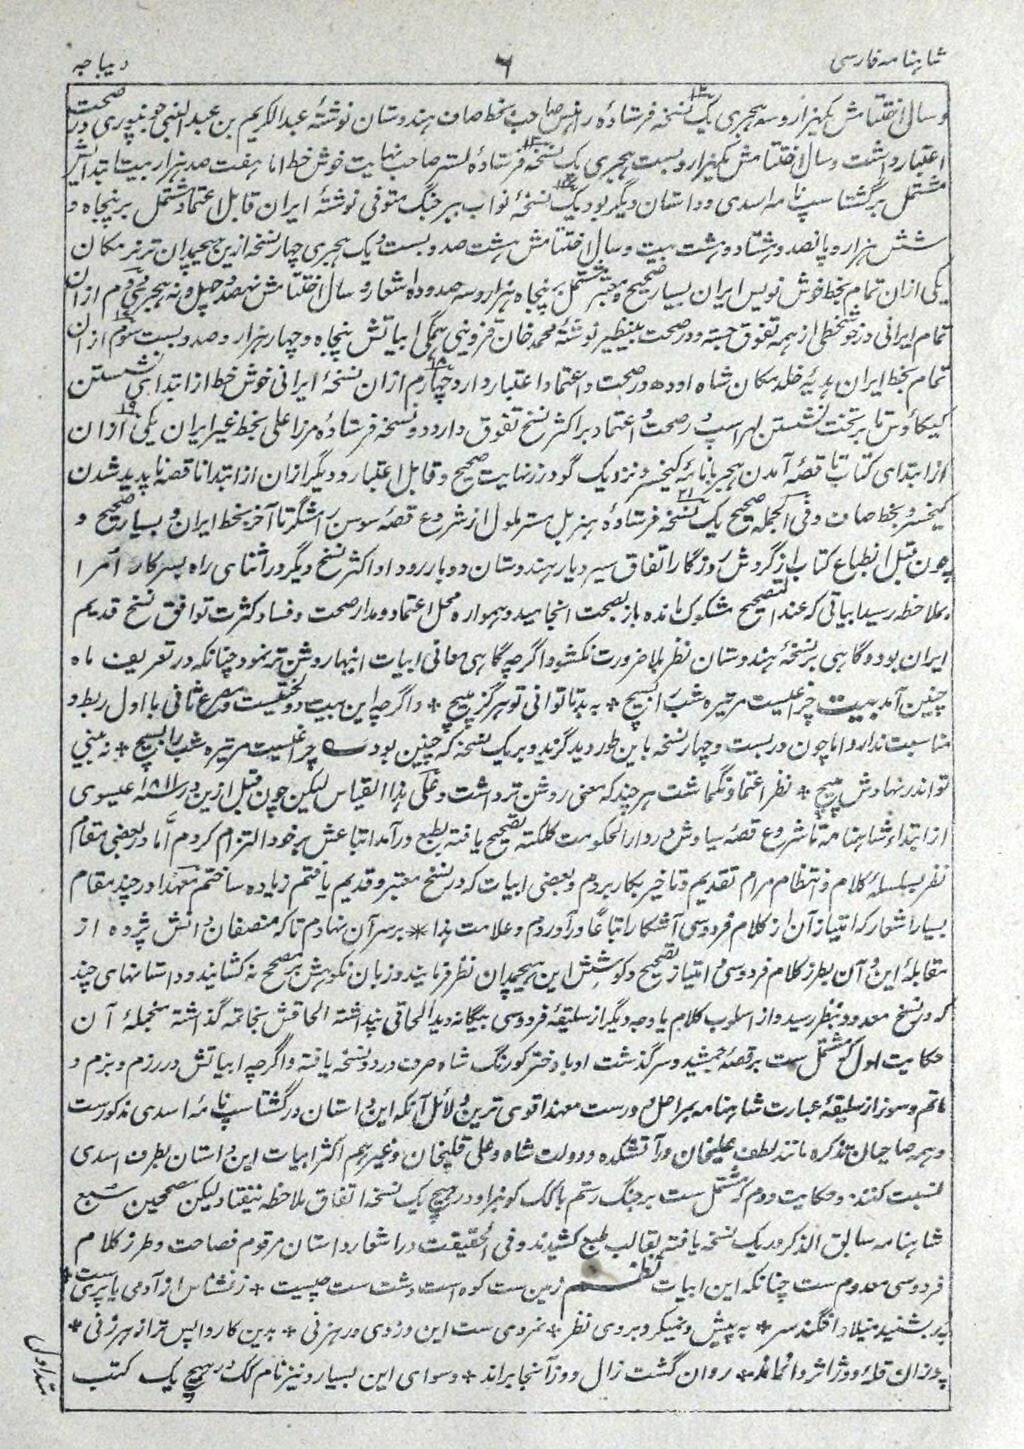 شاہنامہ فارسی ٦ دیباجہ
و سال اختتامش یکہزار و سہ ہجری یک نسخہ فرستادہ رئیس صاحب بخط صاف ہندوستان نوشتہٴ عبدالکریم بن عبدالنبی جونپوری در صحت و
اعتبار داشت و سال اختتامش یکہزار و بست ہجری یک نسخہ فرستادہ لستر صاحب نہایت خوش خط اما ہفت صد ہزار بیت ابتدایش
مشتمل بر گشتاسپ نامہ اسدی و داستان دیگر بود یک نسخہٴ نواب ببر جنگ متوفی نوشتہٴ ایران قابل اعتماد مشتمل بر پنجاہ و
شش ہزار و پانصد و ہشتاد و ہشت بیت و سال اختتامش ہشت صد و بست و یک ہجری چہار نسخہ ازین ہیچمدان ترنر مکان
یکی ازان تمام بخط خوش نویس ایران بسیار صحیح و معتبر مشتمل بر پنجاہ ہزار و سہ صد و دہ اشعار و سال اختتامش نہصد و چہل و نہ ہجری دوم ازان
تمام ایرانی و خوشخطی از ہمہ تفوق جستہ و در صحت بینظیر نوشتہٴ محمد خان قزوینی ہمگی ابیاتش پنجاہ و چہار ہزار و صد و بست سوم ازان
تمام بخط ایران ہدیہٴ خلد مکان شاہ اودھ در صحت و اعتماد اعتبار دارد چہارم ازان نسخہٴ ایرانی خوش خط از ابتدای نشستن
کیکاؤس تا بر تخت نشستن لہراسپ در صحت و اعتماد بر اکثر نسخ تفوق دارد دو نسخہ فرستادہ مرزا علی بخط غیر ایران یکی ازان
از ابتدای کتاب تا قصہٴ آمدن ہجیر با نامہٴ کیخسرو نزدیک گودرز نہایت صحیح و قابل اعتبار و دیگر ازان از ابتدا تا قصہٴ ناپدید شدن
کیخسرو بخط صاف و فی الجملہ صحیح یک نسخہ فرستادہ ہنربل مستر ملول از شروع قصہٴ سوسن رامشگر تا آخر بخط ایران و بسیار صحیح و
چون قبل انطباع کتاب از گردش روزگار اتفاق سیر دیار ہندوستان دوبار رو داد اکثر نسخ دیگر در اثنای راہ بسرکار امرا
بملاحظہ رسید ابیاتی کہ عند التصحیح مشکوک ماندہ باز بصحت انجامید و ہموارہ محل اعتماد و مدار صحت و فساد کثرت توافق نسخ قدیم
ایران بود و گاہی بر نسخہٴ ہندوستان نظر بلا ضرورت نکشود اگرچہ گاہی معانی ابیات اینہا روشن تر نمود چنانکہ در تعریف ماہ
چنین آمد بیت چراغیست مر تیرہ شب را بسیج * بہ بد تا توانی تو ہرگز مپیچ * و اگرچہ این بیت دو لختیست و مصرع ثانی با اول ربط و
مناسبت ندارد اما چون در بست و چہار نسخہ باین طور دید گزید و بر یک نسخہ کہ چنین بود چراغیست مر تیرہ شب را بسیج * نہ بینی
تو اندر نہادش مپیچ * نظر اعتماد نگماشت ہر چند کہ معنی روشن تر داشت و علی ہذا القیاس لیکن چون قبل ازین در سنہ ١٨١١ عیسوی
از ابتداء شاہنامہ تا شروع قصہٴ سیاوش در دارالحکومت کلکتہ تصحیح یافتہ بطبع در آمد اتباعش بر خود التزام کردم اما در بعضی مقام
نظر بسلسلہٴ کلام و انتظام مرام تقدیم و تاخیر بکار بردم و بعضی ابیات کہ در نسخ معتبر و قدیم یافتم زیادہ ساختم معہذا در چند مقام
بسیار اشعار کہ امتیاز آن از کلام فردوسی آشکار اتباعاً در آوردم و علامت ہذا * بر سر آن نہادم تا کہ منصفان دانش پژوہ از
مقابلہٴ این و آن بطرز کلام فردوسی و امتیاز تصحیح و کوشش این ہیچمدان نظر فرمایند و زبان نکوہش بر مصحح نہ کشایند و داستانہای چند
کہ در نسخ معدود بنظر رسید و از اسلوب کلام یا وجہ دیگر از سلیقہٴ فردوسی بیگانہ دید الحاقی پنداشتہ الحاقش بخاتمہ گذاشتہ منجملہٴ آن
حکایت اول کہ مشتمل ست بر قصہٴ جمشید و سرگذشت او با دختر کورنگ شاہ صرف در دو نسخہ یافتہ و اگرچہ ابیاتش در رزم و بزم و
ماتم و سوز از سلیقہٴ عبارت شاہنامہ بمراحل دورست معہذا قوی ترین دلائل آنکہ این داستان در گشتاسپ نامہٴ اسدی مذکورست
و ہمہ صاحبان تذکرہ مانند لطف علیخان در آتشکدہ و دولت شاہ و علی قلیخان و غیرہم اکثر ابیات این داستان بطرف اسدی
نسبت کنند و حکایت دوم کہ مشتمل ست بر جنگ رستم با کک کوہزاد در ہیچ یک نسخہ اتفاق ملاحظہ نیفتاد لیکن مصححین سبع
شاہنامہ سابق الذکر در یک نسخہ یافتہ بقالب طبع کشیدند و فی الحقیقت در اشعار داستان مرقوم فصاحت و طرز کلام
فردوسی معدوم ست چنانکہ این ابیات نظم زمین ست کوہ است و دشت ست چیست * ز نشناس از آدمی یا پریست *
بہ بشنید میلاد افگند سر * بہ پیش و نمیکرد بروی نظر * نمردمی ست این دزدی و رہزنی * بدین کار واپس تر از ہر زنی *
روان گشت زال و زو آنجا براند * و سوای این بسیار و نیز نام کک در ہیچ یک کتب
متداول